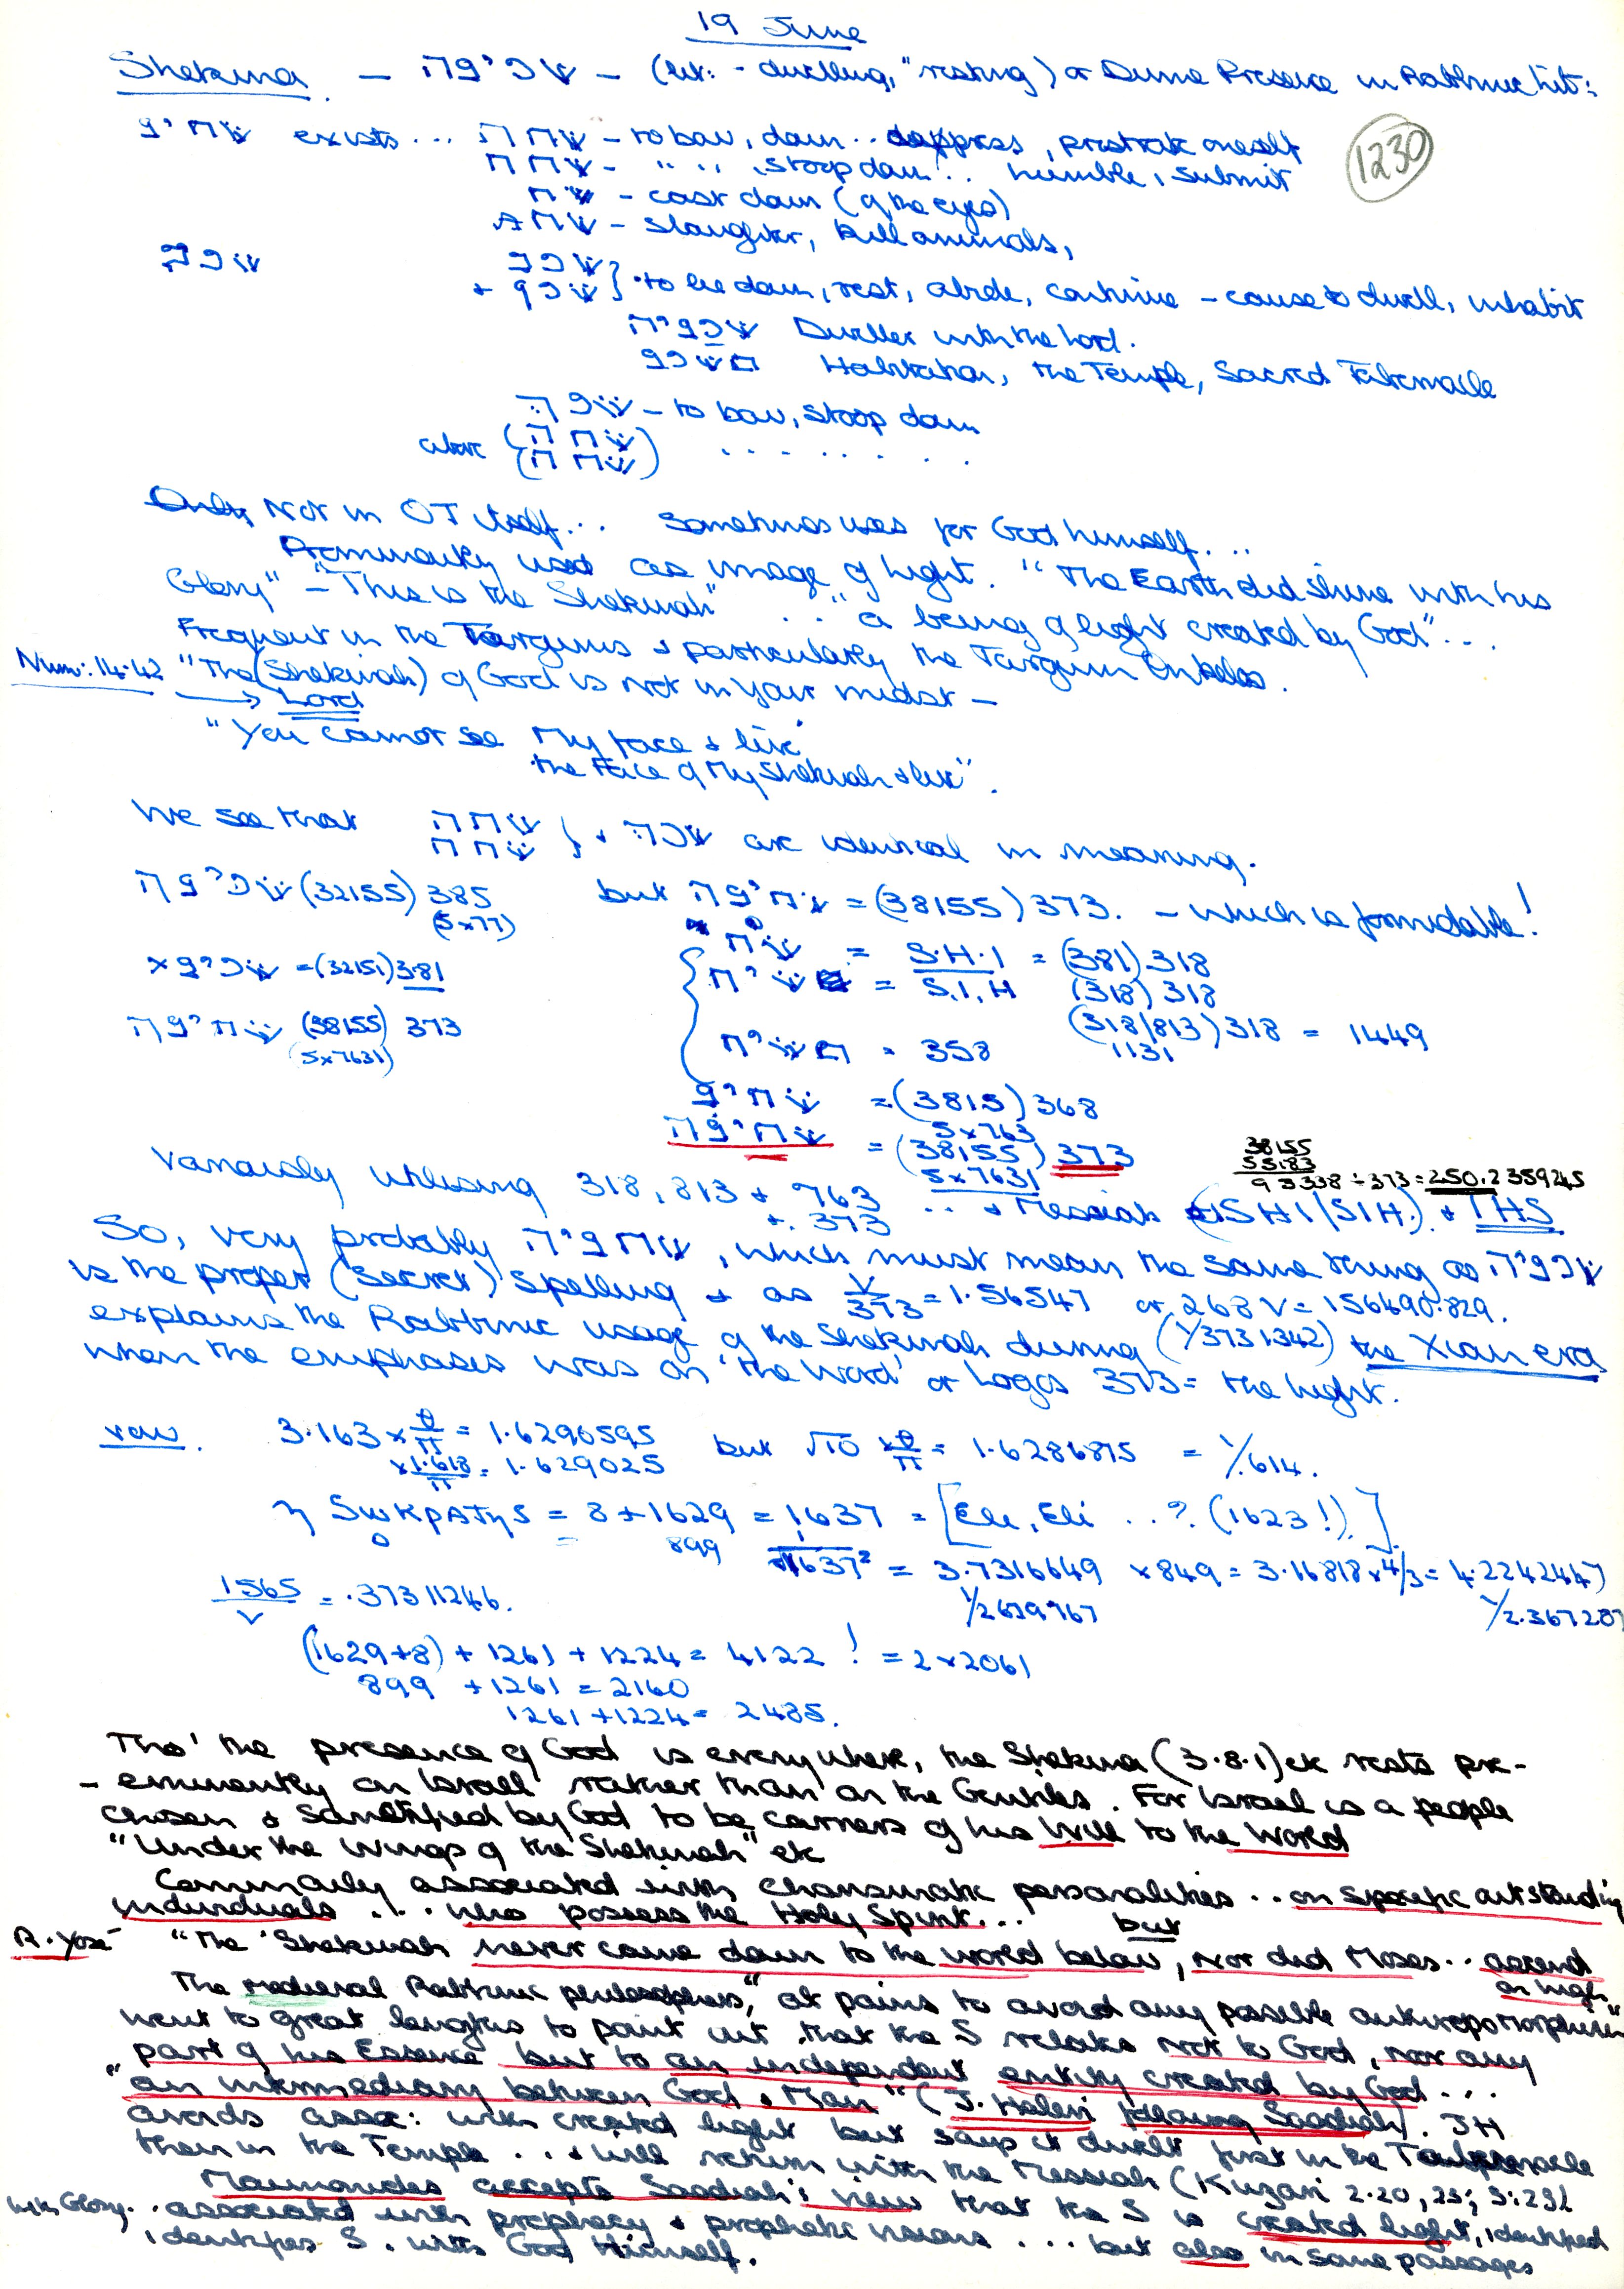 19 June
Shekina — שכינה — (lit: - dwelling, "resting) or Divine Presence in Rabbinic Lit:
שחין exists ... שחה — to bow, down .. depress, prostrate oneself
שחח — " " , stoop down .. humble, submit
שח — cast down (of the eyes)
שחט — Slaughter, kill animals,
שכן
+ שכן } to lie down, rest, abide, continue — cause to dwell, inhabit
שכניה Dweller with the Lord.
משכן Habitation, the Temple, Sacred Tabernacle
שכה — to bow, stoop down
also (שחה
(שחח) . . . . . . . .
Not in OT itself... Sometimes uses for God himself...
Prominently used as image of light. "The Earth did shine with his
Glory" — "This is the Shekinah" ... "a being of light created by God"...
Frequent in the Targums & particularly the Targum Onkelos.
Num: 14.42 "The (Shekinah) of God is not in your midst —
→ Lord
"You cannot see My face & live
the Face of My Shekinah & live".
We see that שחה
שחח } + שכה are identical in meaning.
שכינה (32155) 385 but שחינה = (38155) 373. — which is formidable!
(5x77)
שחי = S.H.I = (381) 318
× שכינ = (32151) 381
שיח = S.I.H (318) 318
(318/813) 318 = 1449
1131
שחינה (38155) 373
(5x7631)
משיח = 358
שחין = (3815) 368
5x763
שחינה = (38155) 373
5x7631
38155
55183
93338 ÷ 373 = 250.2359245
Variously utilising 318, 813 + 763 .. + Messiah (SHI/SIH) + IHS
+ 373
So, very probably שחניה, which must mean the same thing as שכניה
is the proper (secret) spelling & as V/373 = 1.56547 or 268 V = 156490.829.
explains the Rabbinic usage of the Shekinah during (1/3731342) the Xian era
when the emphases was on 'the Word' or Logos 373 = the light.
3.163 x θ/π = 1.6290595 but √10 x θ/π = 1.6286875 = 1/.614.
x 1.618/π = 1.629025
η SωKρATηS = 8 + 1629 = 1637 = [Eli, Eli ..? (1623!)]
899
1/1637² = 3.7316649 x 849 = 3.16818 x 4/3 = 4.2242447
1/2679767 1/2.367287
1565/V = .37311246.
(1629+8) + 1261 + 1224 = 4122 ! = 2x2061
899 + 1261 = 2160
1261 + 1224 = 2485.
Tho' the presence of God is everywhere, the Shekina (3.8.1) etc rests pre-
- eminently on Israel rather than on the Gentiles. For Israel is a people
chosen & sanctified by God to be carriers of his Will to the World
"Under the wings of the Shekinah" etc
Commonly associated with charismatic personalities .. on specific outstanding
individuals ... who possess the Holy Spirit...
R. Yosé "The Shekinah never came down to the world below, but nor did Moses .. ascend
on high"
The medieval Rabbinic philosophers, "at pains to avoid any possible anthropomorphism"
went to great lengths to point out that the S relates not to God, nor any
part of his Essence but to an independent entity created by God ...
"an intermediary between God & Man" (J. Halevi following Saadiah). JH
avoids assoc: with created light but says it dwelt first in the Tabernacle
then in the Temple ... & will return with the Messiah (Kuzari 2.20, 23; 3:23)
Maimonides accepts Saadiah's view that the S is created light, identified
with Glory .. associated with prophecy & prophetic visions ... but also in some passages
identifies S. with God Himself.
1230